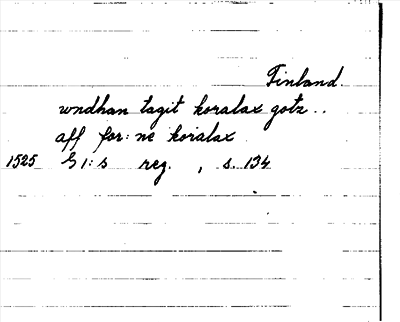 Finland.
wndhan tagit koralax gotz..
aff for:ne koralax
1525 G1:s reg., s. 134